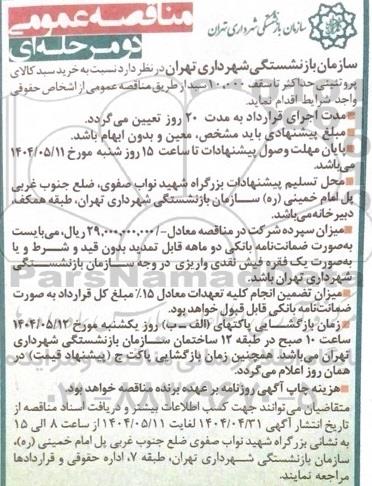 مناقصه عمومی
دو مرحله‌ای
سازمان بازنشستگی شهرداری تهران
سازمان بازنشستگی شهرداری تهران در نظر دارد نسبت به خرید سبد کالای
پروتئینی حداکثر تا سقف ۱۰,۰۰۰ سبد از طریق مناقصه عمومی از اشخاص حقوقی
واجد شرایط اقدام نماید.
■مدت اجرای قرارداد به مدت ۲۰ روز تعیین می‌گردد.
■مبلغ پیشنهادی باید مشخص، معین و بدون ابهام باشد.
■پایان مهلت وصول پیشنهادات تا ساعت ۱۵ روز شنبه مورخ ۱۴۰۴/۰۵/۱۱
می‌باشد.
■محل تسلیم پیشنهادات بزرگراه شهید نواب صفوی، ضلع جنوب غربی
پل امام خمینی (ره) سازمان بازنشستگی شهرداری تهران، طبقه همکف
دبیرخانه می‌باشد.
■میزان سپرده شرکت در مناقصه معادل -/۲۹,۰۰۰,۰۰۰,۰۰۰ ریال، می‌بایست
به‌صورت ضمانت‌نامه بانکی دو ماهه قابل تمدید بدون قید و شرط و یا
به‌صورت یک فقره فیش نقدی واریزی در وجه سازمان بازنشستگی
شهرداری تهران باشد.
■میزان تضمین انجام کلیه تعهدات معادل ۱۵٪ مبلغ کل قرارداد به صورت
ضمانت‌نامه بانکی قابل قبول خواهد بود.
■زمان بازگشایی پاکتهای (الف-ب) روز یکشنبه مورخ ۱۴۰۴/۰۵/۱۲
ساعت ۱۰ صبح در طبقه ۱۲ ساختمان سازمان بازنشستگی شهرداری
تهران می‌باشد. همچنین زمان بازگشایی پاکت ج (پیشنهاد قیمت) در
همان روز اعلام می‌گردد.
■هزینه چاپ آگهی روزنامه بر عهده برنده مناقصه خواهد بود.
متقاضیان می‌توانند جهت کسب اطلاعات بیشتر و دریافت اسناد مناقصه از
تاریخ انتشار آگهی ۱۴۰۴/۰۴/۳۱ لغایت ۱۴۰۴/۰۵/۱۱ از ساعت ۸ الی ۱۵
به نشانی بزرگراه شهید نواب صفوی ضلع جنوب غربی پل امام خمینی (ره)،
سازمان بازنشستگی شهرداری تهران، طبقه ۷، اداره حقوقی و قراردادها
مراجعه نمایند.